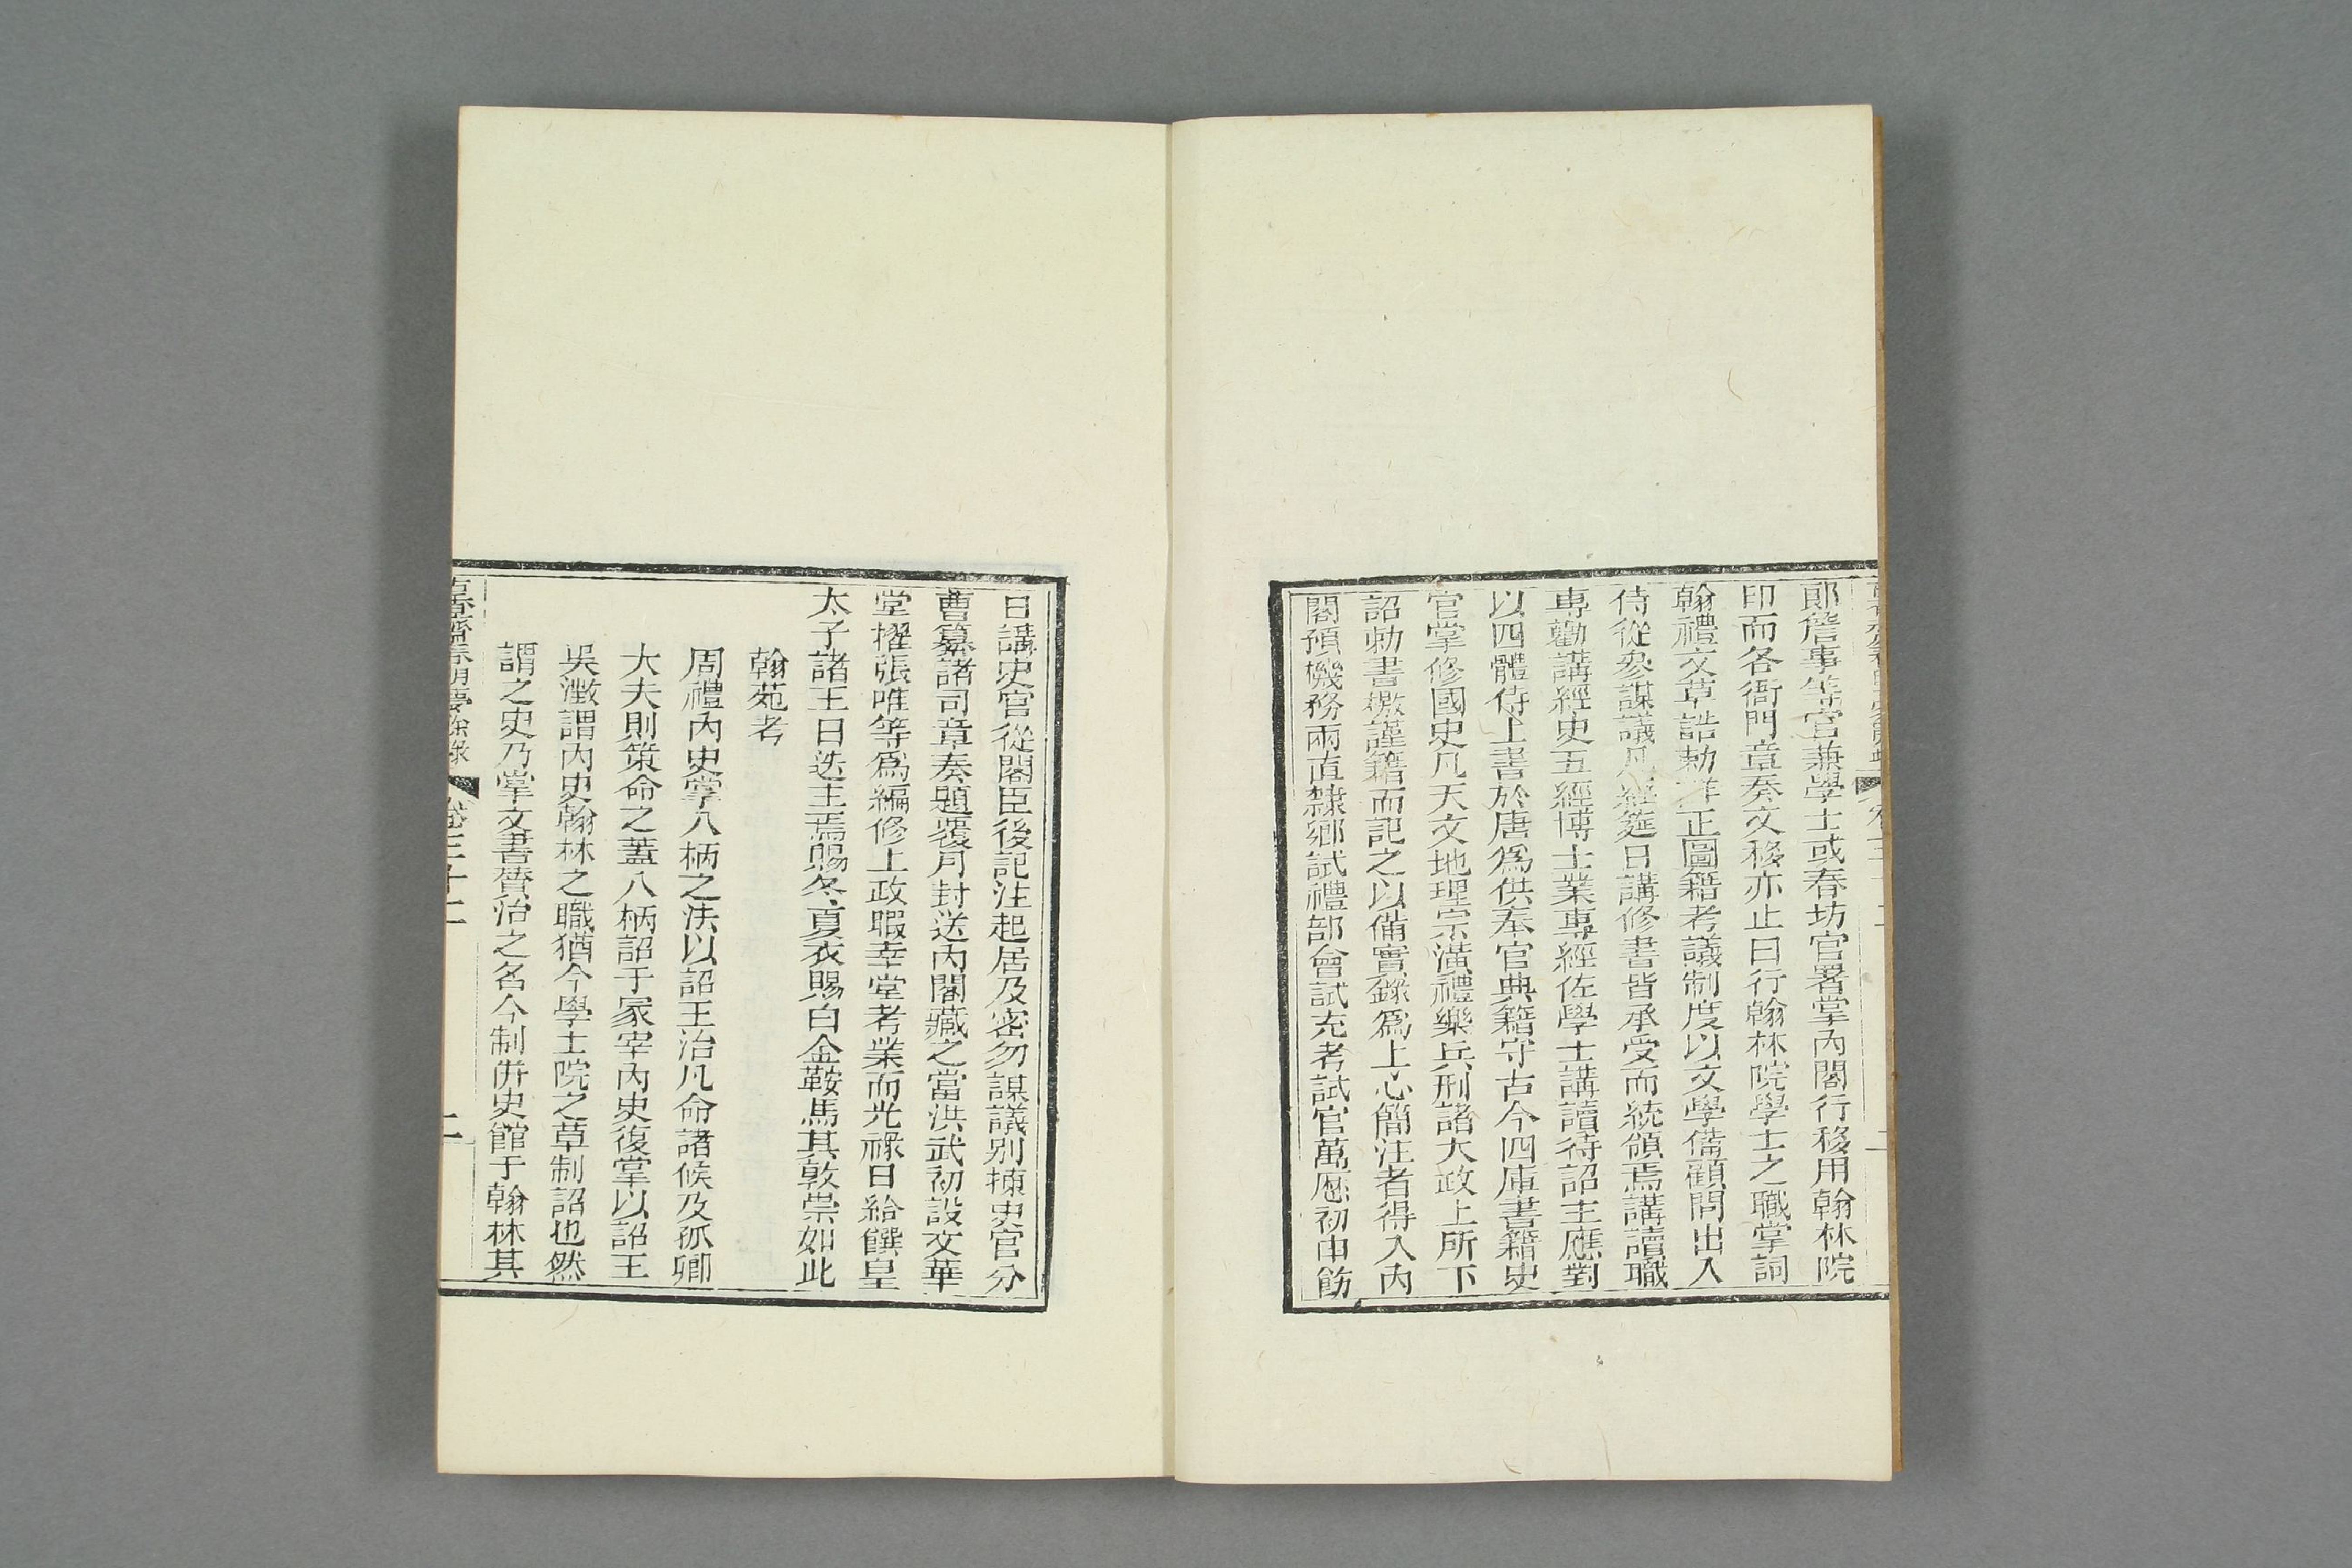 郎詹事等官兼學士或春坊官署掌內閣行移用翰林院
印而各衙門章奏文移亦止曰行翰林院學士之職掌詞
翰禮文草誥勅詳正圖籍考議制度以文學備顧問出入
侍從參謀議凡經筵日講修書皆承受而統領焉講讀職
專勸講經史五經博士業專經佐學士講讀待詔主應對
以四體侍上書於唐爲供奉官典籍守古今四庫書籍史
官掌修國史凡天文地理宗潢禮樂兵刑諸大政上所下
詔勅書檄謹籍而記之以備實錄爲上心簡注者得入內
閣預機務兩直隸鄉試禮部會試充考試官萬歷初申飭
日講史官從閣臣後記注起居及密勿謀議别揀史官分
曹纂諸司章奏題覆月封送內閣藏之當洪武初設文華
堂擢張唯等爲編修上政暇幸堂考業而光祿日給饌皇
太子諸王日迭主焉賜冬夏衣賜白金鞍馬其敦崇如此
翰苑考
周禮內史掌八柄之法以詔王治凡命諸侯及孤卿
大夫則策命之蓋八柄詔于冢宰內史復掌以詔王
吳澂謂內史翰林之職猶今學士院之草制詔也然
謂之史乃掌文書贊治之名今制併史館于翰林其
古香齋春明夢餘錄 卷三十二 二